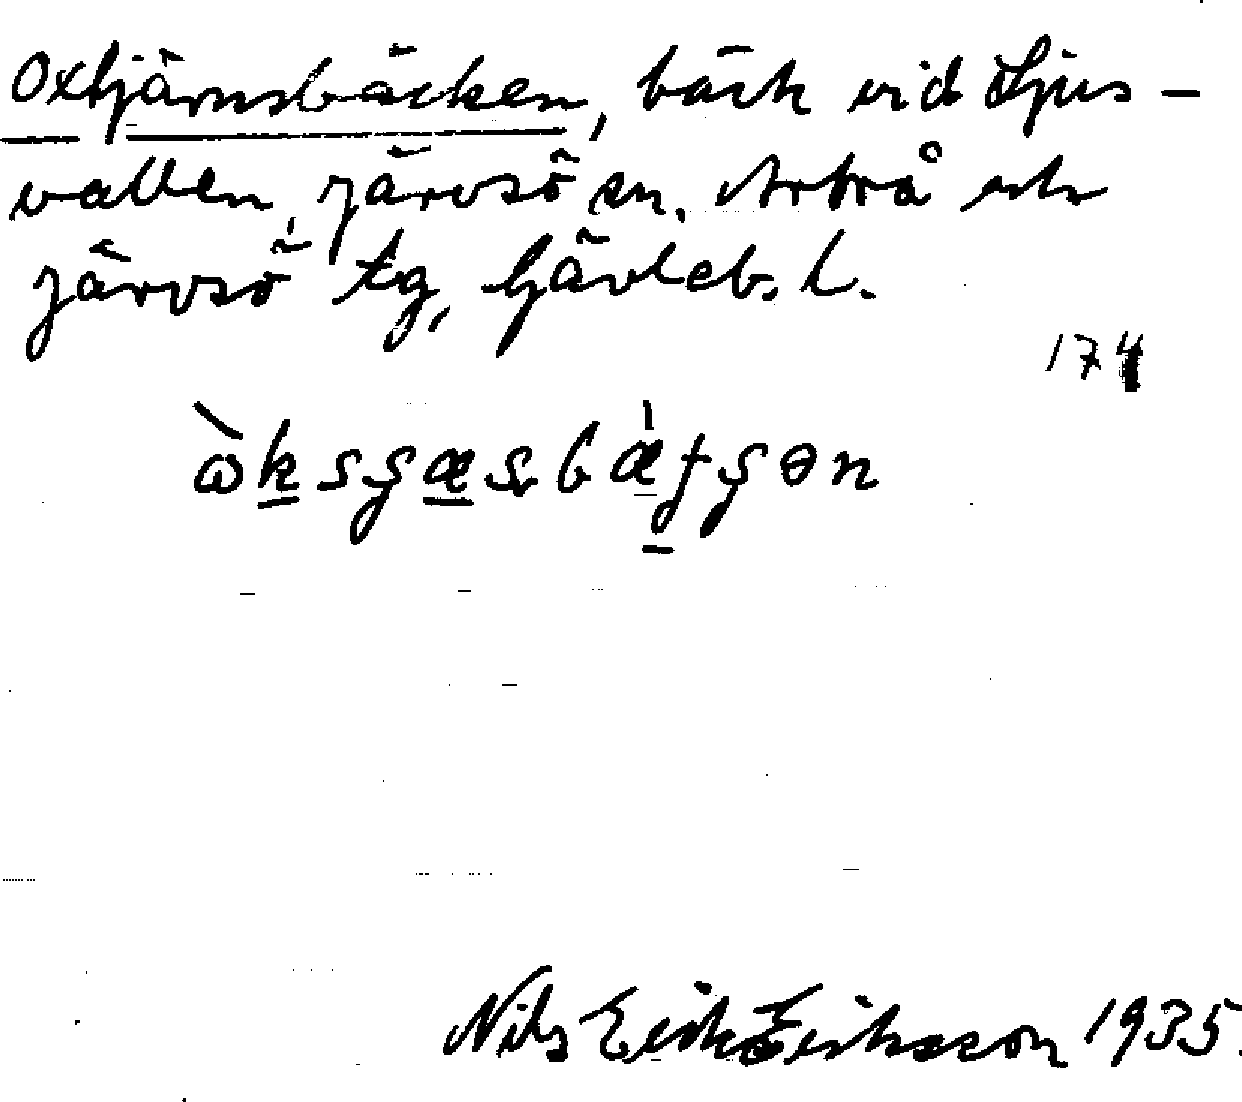 Oxtjärnsbäcken, bäck vid Ljus-
vallen, Järvsö sn, Arbrå och
Järvsö tg, Gävleb. l.
174
Nils Erik Eriksson 1935.